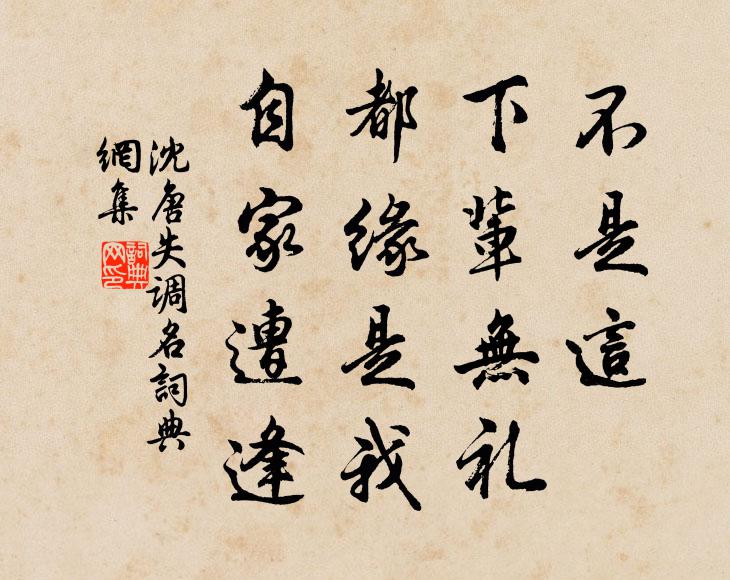 不是這
下輩無礼
都緣是我
自家遭逢
沈唐失調名詞典
網集
詞典
网印